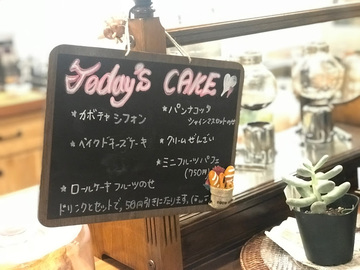 Today's CAKE
* カボチャ シフォン
* ベイクドチーズケーキ
* ロールケーキ フルーツのせ
* パンナコッタ
シャインマスカットのせ
* クリームぜんざい
* ミニフルーツパフェ
(750円)
ドリンクとセットで、50円引きになります。